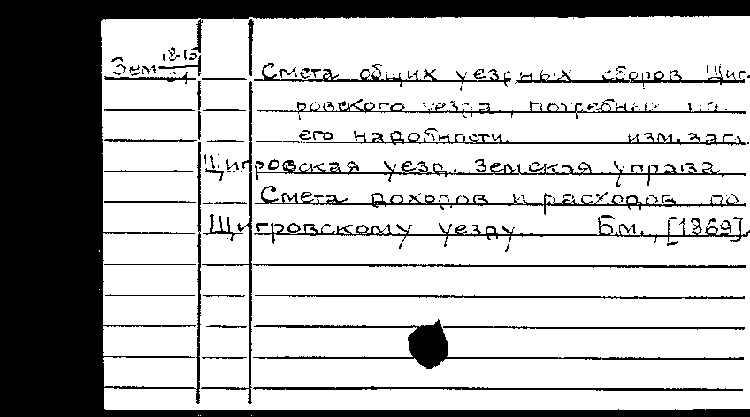 Зем 18-15
Смета общих уездных сборов Щиг-
ровского уезда, потребных на
его надобности. изм. загл.
Щигровская уезд. земская управа.
Смета доходов и расходов по
Щигровскому уезду... Б.м., [1869].